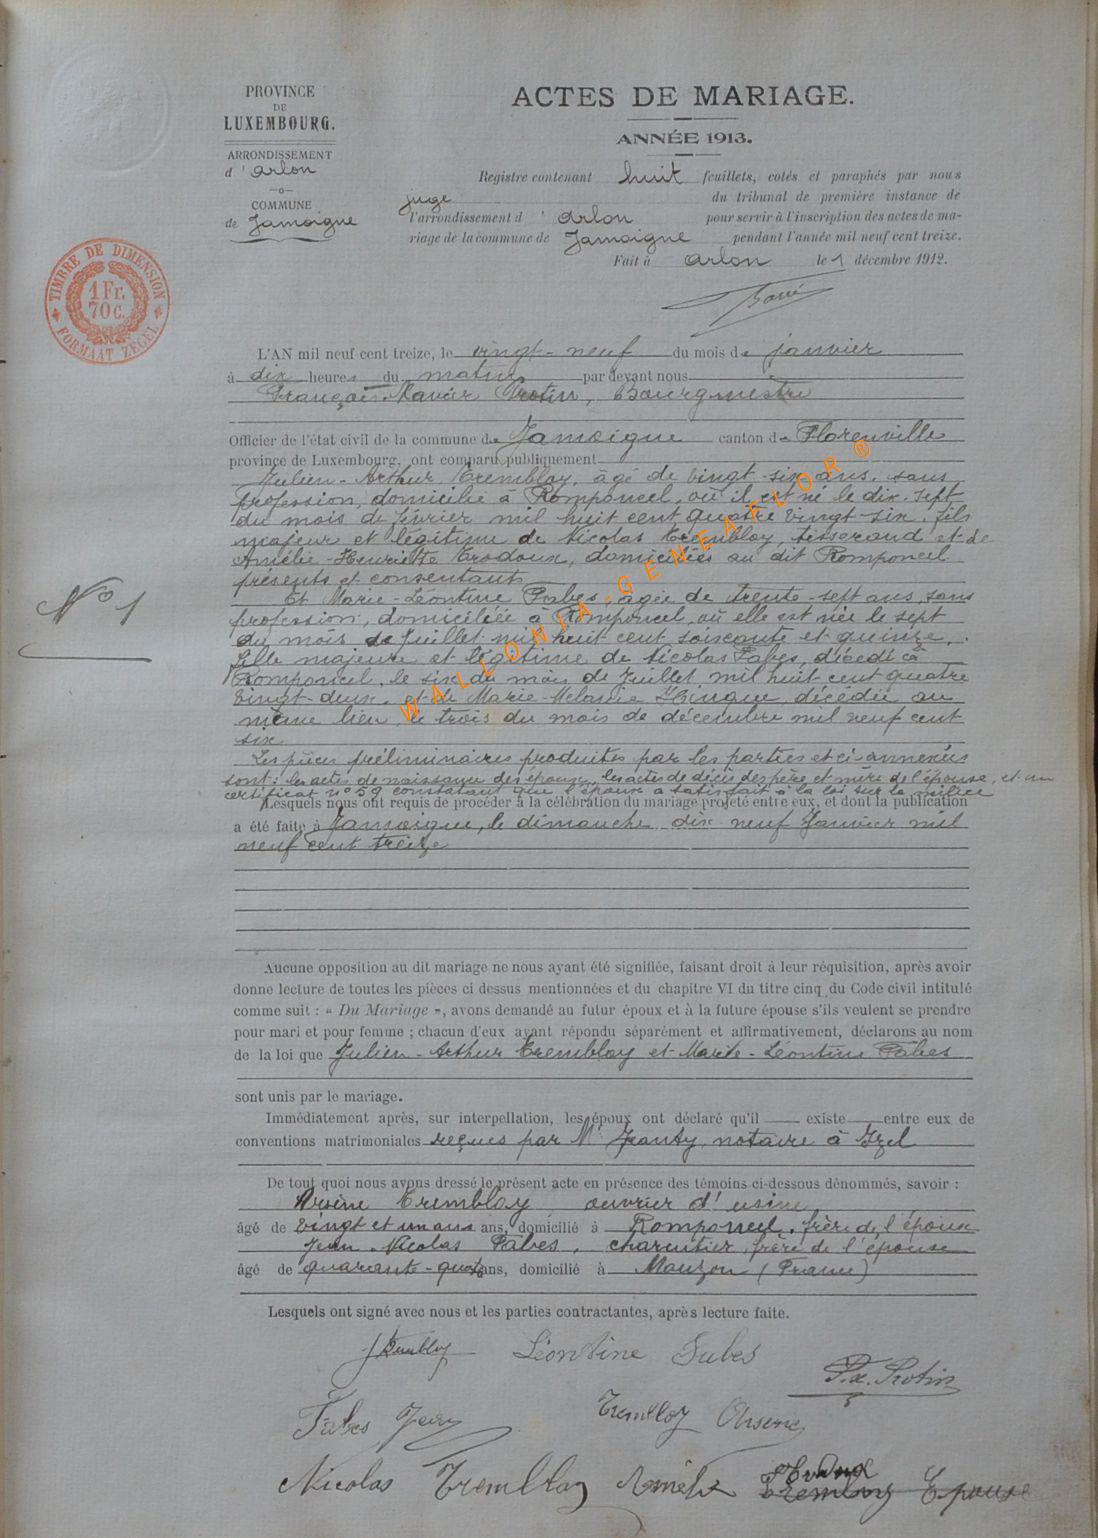 PROVINCE
DE
LUXEMBOURG.
ARRONDISSEMENT
d'Arlon
COMMUNE
de Jamoigne
TIMBRE DE DIMENSION
1 Fr.
70 c.
FORMAAT ZEGEL
ACTES DE MARIAGE.
ANNÉE 1913.
Registre contenant huit feuillets, cotés et paraphés par nous
juge du tribunal de première instance de
l'arrondissement d'Arlon pour servir à l'inscription des actes de ma-
riage de la commune de Jamoigne pendant l'année mil neuf cent treize.
Fait à Arlon le 1 décembre 1912.
N° 1
L'AN mil neuf cent treize, le vingt-neuf du mois de janvier
à dix heures du matin par devant nous
François-Xavier Protin, Bourgmestre
Officier de l'état civil de la commune de Jamoigne canton de Florenville
province de Luxembourg, ont comparu publiquement
Julien-Arthur Tremblay, âgé de vingt-six ans, sans
profession, domicilié à Romponcel, où il est né le dix-sept
du mois de février mil huit cent quatre vingt-six, fils
majeur et légitime de Nicolas Tremblay, tisserand et de
Amélie-Henriette Trodoux, domiciliés au dit Romponcel
présents et consentants
Et Marie-Léontine Fabes, âgée de trente-sept ans, sans
profession, domiciliée à Romponcel, où elle est née le sept
du mois de Juillet mil huit cent soixante et quinze,
fille majeure et légitime de Nicolas Fabes, décédé à
Romponcel, le six du mois de Juillet mil huit cent quatre
vingt-deux, et de Marie-Mélanie décédée au
même lieu, le trois du mois de décembre mil neuf cent
six
Les pièces préliminaires produites par les parties et ci-annexées
sont: les actes de naissance des époux, les actes de décès des père et mère de l'épouse, et un
certificat n° 59 constatant que l'époux a satisfait à la loi sur la milice
Lesquels nous ont requis de procéder à la célébration du mariage projeté entre eux, et dont la publication
a été faite à Jamoigne, le dimanche dix-neuf Janvier mil
neuf cent treize
WALLONIA-GENEAFLOR ®
Aucune opposition au dit mariage ne nous ayant été signifiée, faisant droit à leur réquisition, après avoir
donne lecture de toutes les pièces ci dessus mentionnées et du chapitre VI du titre cinq du Code civil intitulé
comme suit : « Du Mariage », avons demandé au futur époux et à la future épouse s'ils veulent se prendre
pour mari et pour femme ; chacun d'eux ayant répondu séparément et affirmativement, déclarons au nom
de la loi que Julien-Arthur Tremblay et Marie-Léontine Fabes
sont unis par le mariage.
Immédiatement après, sur interpellation, les époux ont déclaré qu'il existe entre eux de
conventions matrimoniales reçues par Me notaire à Izel
De tout quoi nous avons dressé le présent acte en présence des témoins ci-dessous dénommés, savoir :
Arsène Tremblay ouvrier d'usine
âgé de vingt et un ans ans, domicilié à Romponcel, frère de l'époux
Jean-Nicolas Fabes, charpentier frère de l'épouse
âgé de quarante-quatre ans, domicilié à Mouzon (France)
Lesquels ont signé avec nous et les parties contractantes, après lecture faite.
J Tremblay
Léontine Fabes
F.x. Protin
Fabes Jean
Tremblay Arsène
Nicolas Tremblay
Amélie Trodoux
Tremblay Epouse